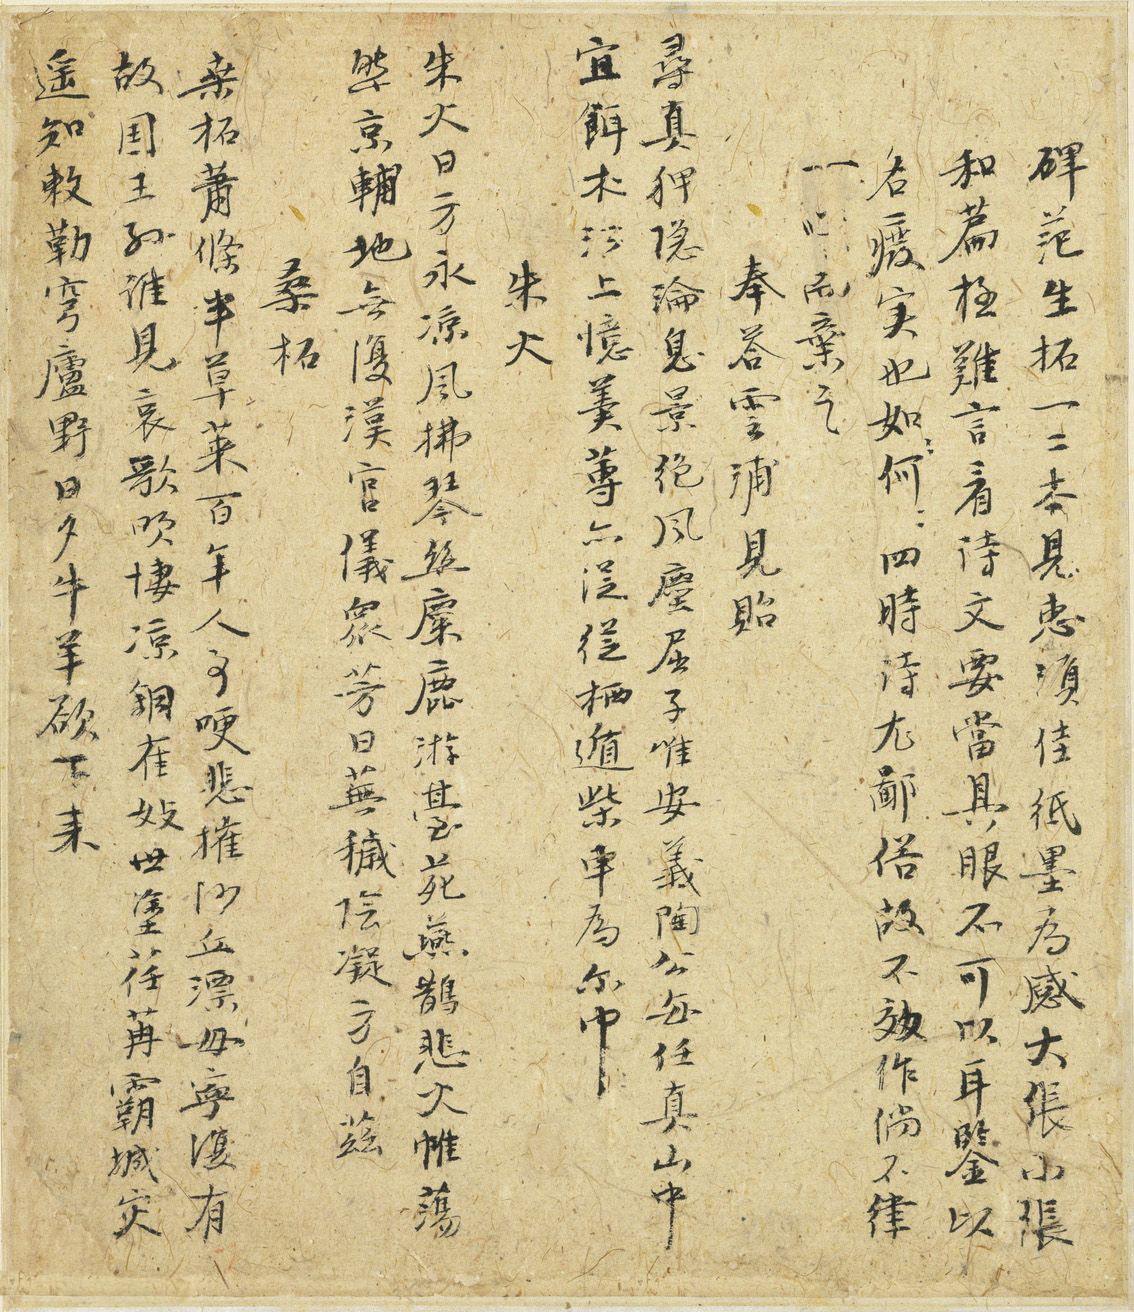 碑范生拓一二本見惠須佳紙墨為感大張小張
和篇極難言看詩文要當具眼不可以耳鑒以
名廢実也如何如何四時詩尤鄙俗故不效作倘不律
一 而棄之
奉荅雲浦見貽
尋真狎隐淪息景絶風塵屈子唯安義陶公每任真山中
宜餌朮沙上憶羹蓴亦從從栖遁柴車為尔巾
朱火
朱火日方永凉風拂琴丝麋鹿游臺苑燕鵲悲火帷蕩
㷼京輔地無復漢官儀眾芳日蕪穢陰凝方自茲
桑柘
桒柘蕭條半草萊百年人事哽悲摧沙丘漂母寧復有
故国王孙誰見哀歌吹悽凉銅雀妓世塗荏苒霸城灾
遥知敕勒穹廬野日夕牛羊欲下来